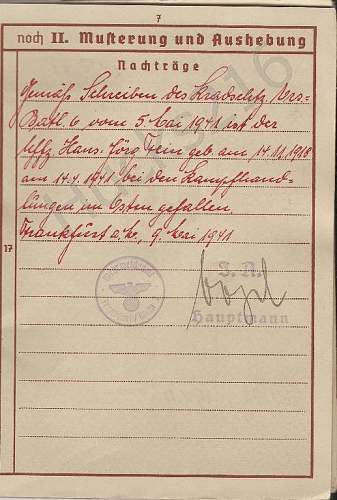 7
noch II. Musterung und Aushebung
Nachträge
Gemäß Schreiben des Kradschtz. Ers-
Batl. 6 vom 5 Mai 1941 ist der
Uffz. Hans-Jörg Fein geb. am 14.11.1918
am 14.4.1941 bei den Kampfhand-
lungen im Osten gefallen.
Frankfurt a. M., 9. Mai 1941
17
I. A.
Vogel
Hauptmann